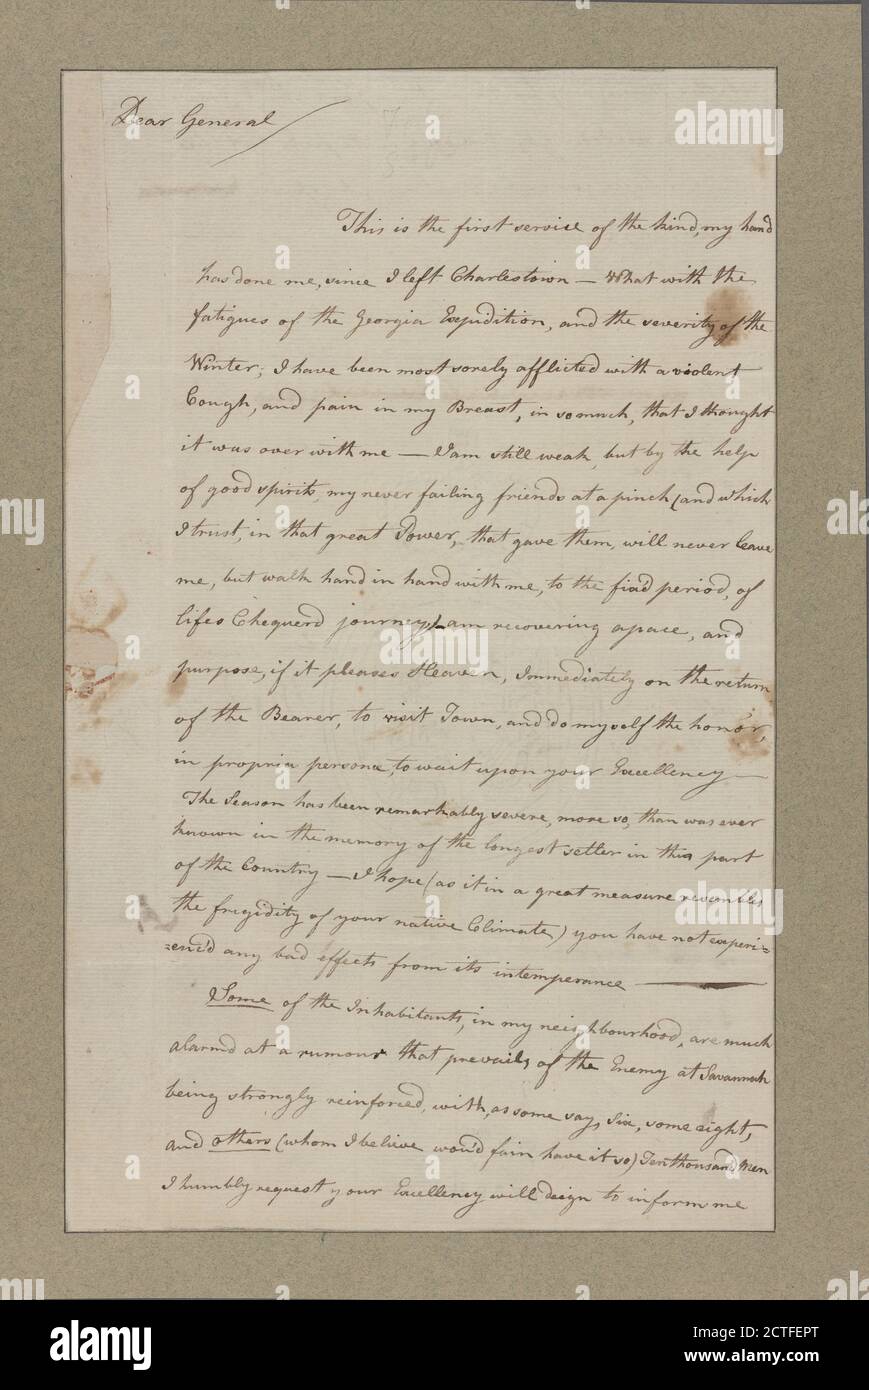 Dear General
This is the first service of the kind, my hand
has done me, since I left Charlestown — What with the
fatigues of the Georgia Expidition, and the severity of the
Winter; I have been most sorely afflicted with a violent
Cough, and pain in my Breast, in somuch, that I thought
it was over with me — I am still weak, but by the help
of good spirits, my never failing friends at a pinch (and which
I trust, in that great Power, that gave them, will never leave
me, but walk hand in hand with me, to the fix'd period, of
lifes Chequerd journey) am recovering apace, and
purpose, if it pleases Heaven, Immediately on the return
of the Bearer, to visit Town, and do myself the honor,
in propria persona, to wait upon your Excellency —
The Season has been remarkably severe, more so, than was ever
known in the memory of the longest settler in this part
of the Country — I hope (as it in a great measure resembles
the frigidity of your native Climate) you have not experi=
=enc'd any bad effects from its intemperance —
Some of the Inhabitants, in my neighbourhood, are much
alarm'd at a rumour that prevails of the Enemy at Savannah
being strongly reinforced, with, as some say, Six, some eight,
and others (whom I believe wou'd fain have it so) Ten thousand Men
I humbly request your Excellency will deign to inform me
alamy
Image ID: 2CTFEPT
www.alamy.com